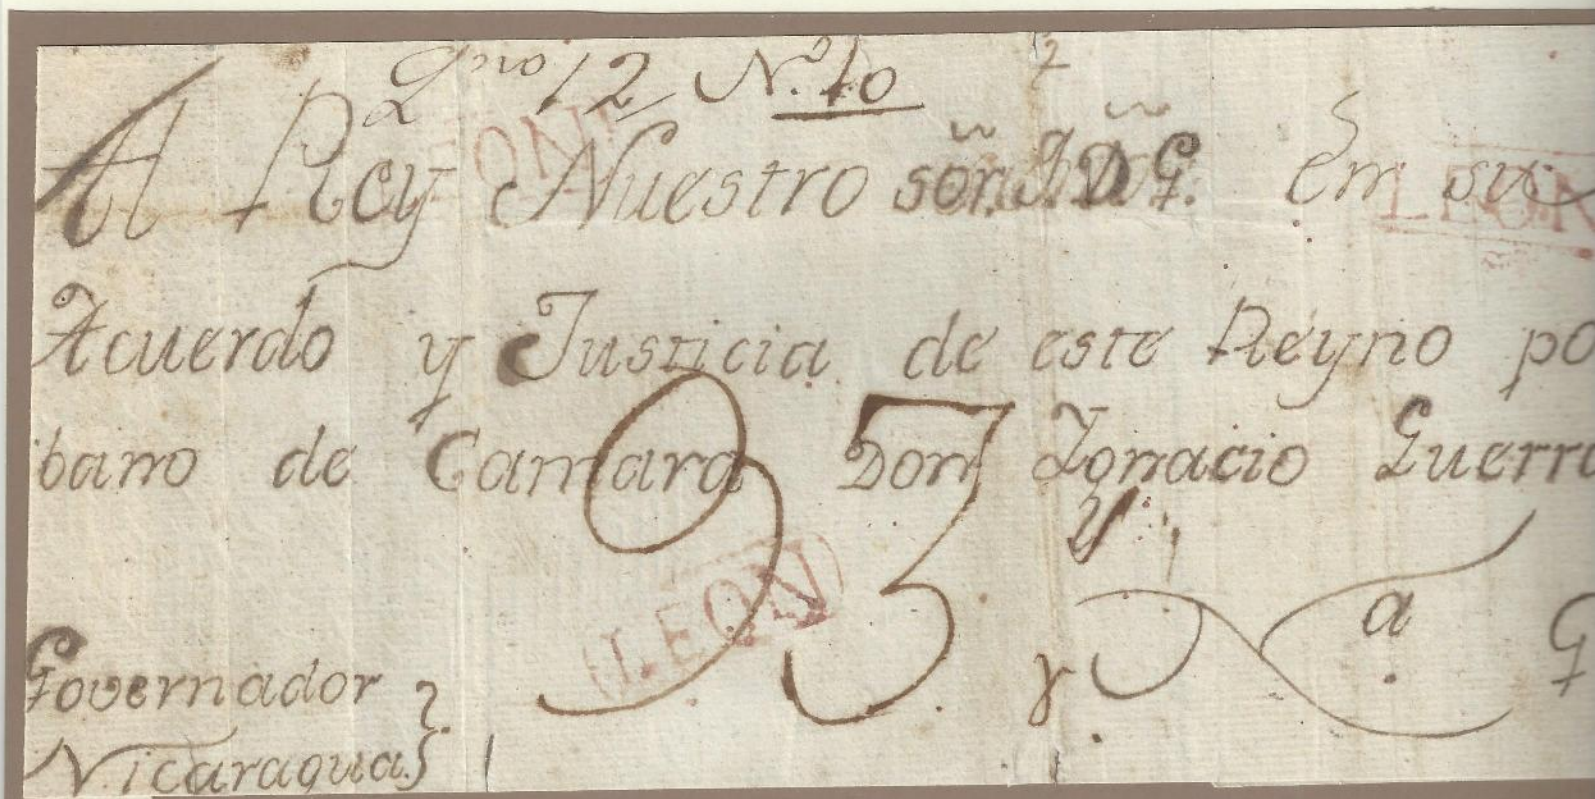 12 N.º 40
Al Rey Nuestro señr. q. D. G. En su
LEON
LEON
Acuerdo y Justicia de este Reyno po
bano de Camara Don Ygnacio Guerra
93
LEON
a G
Governador
Nicaragua